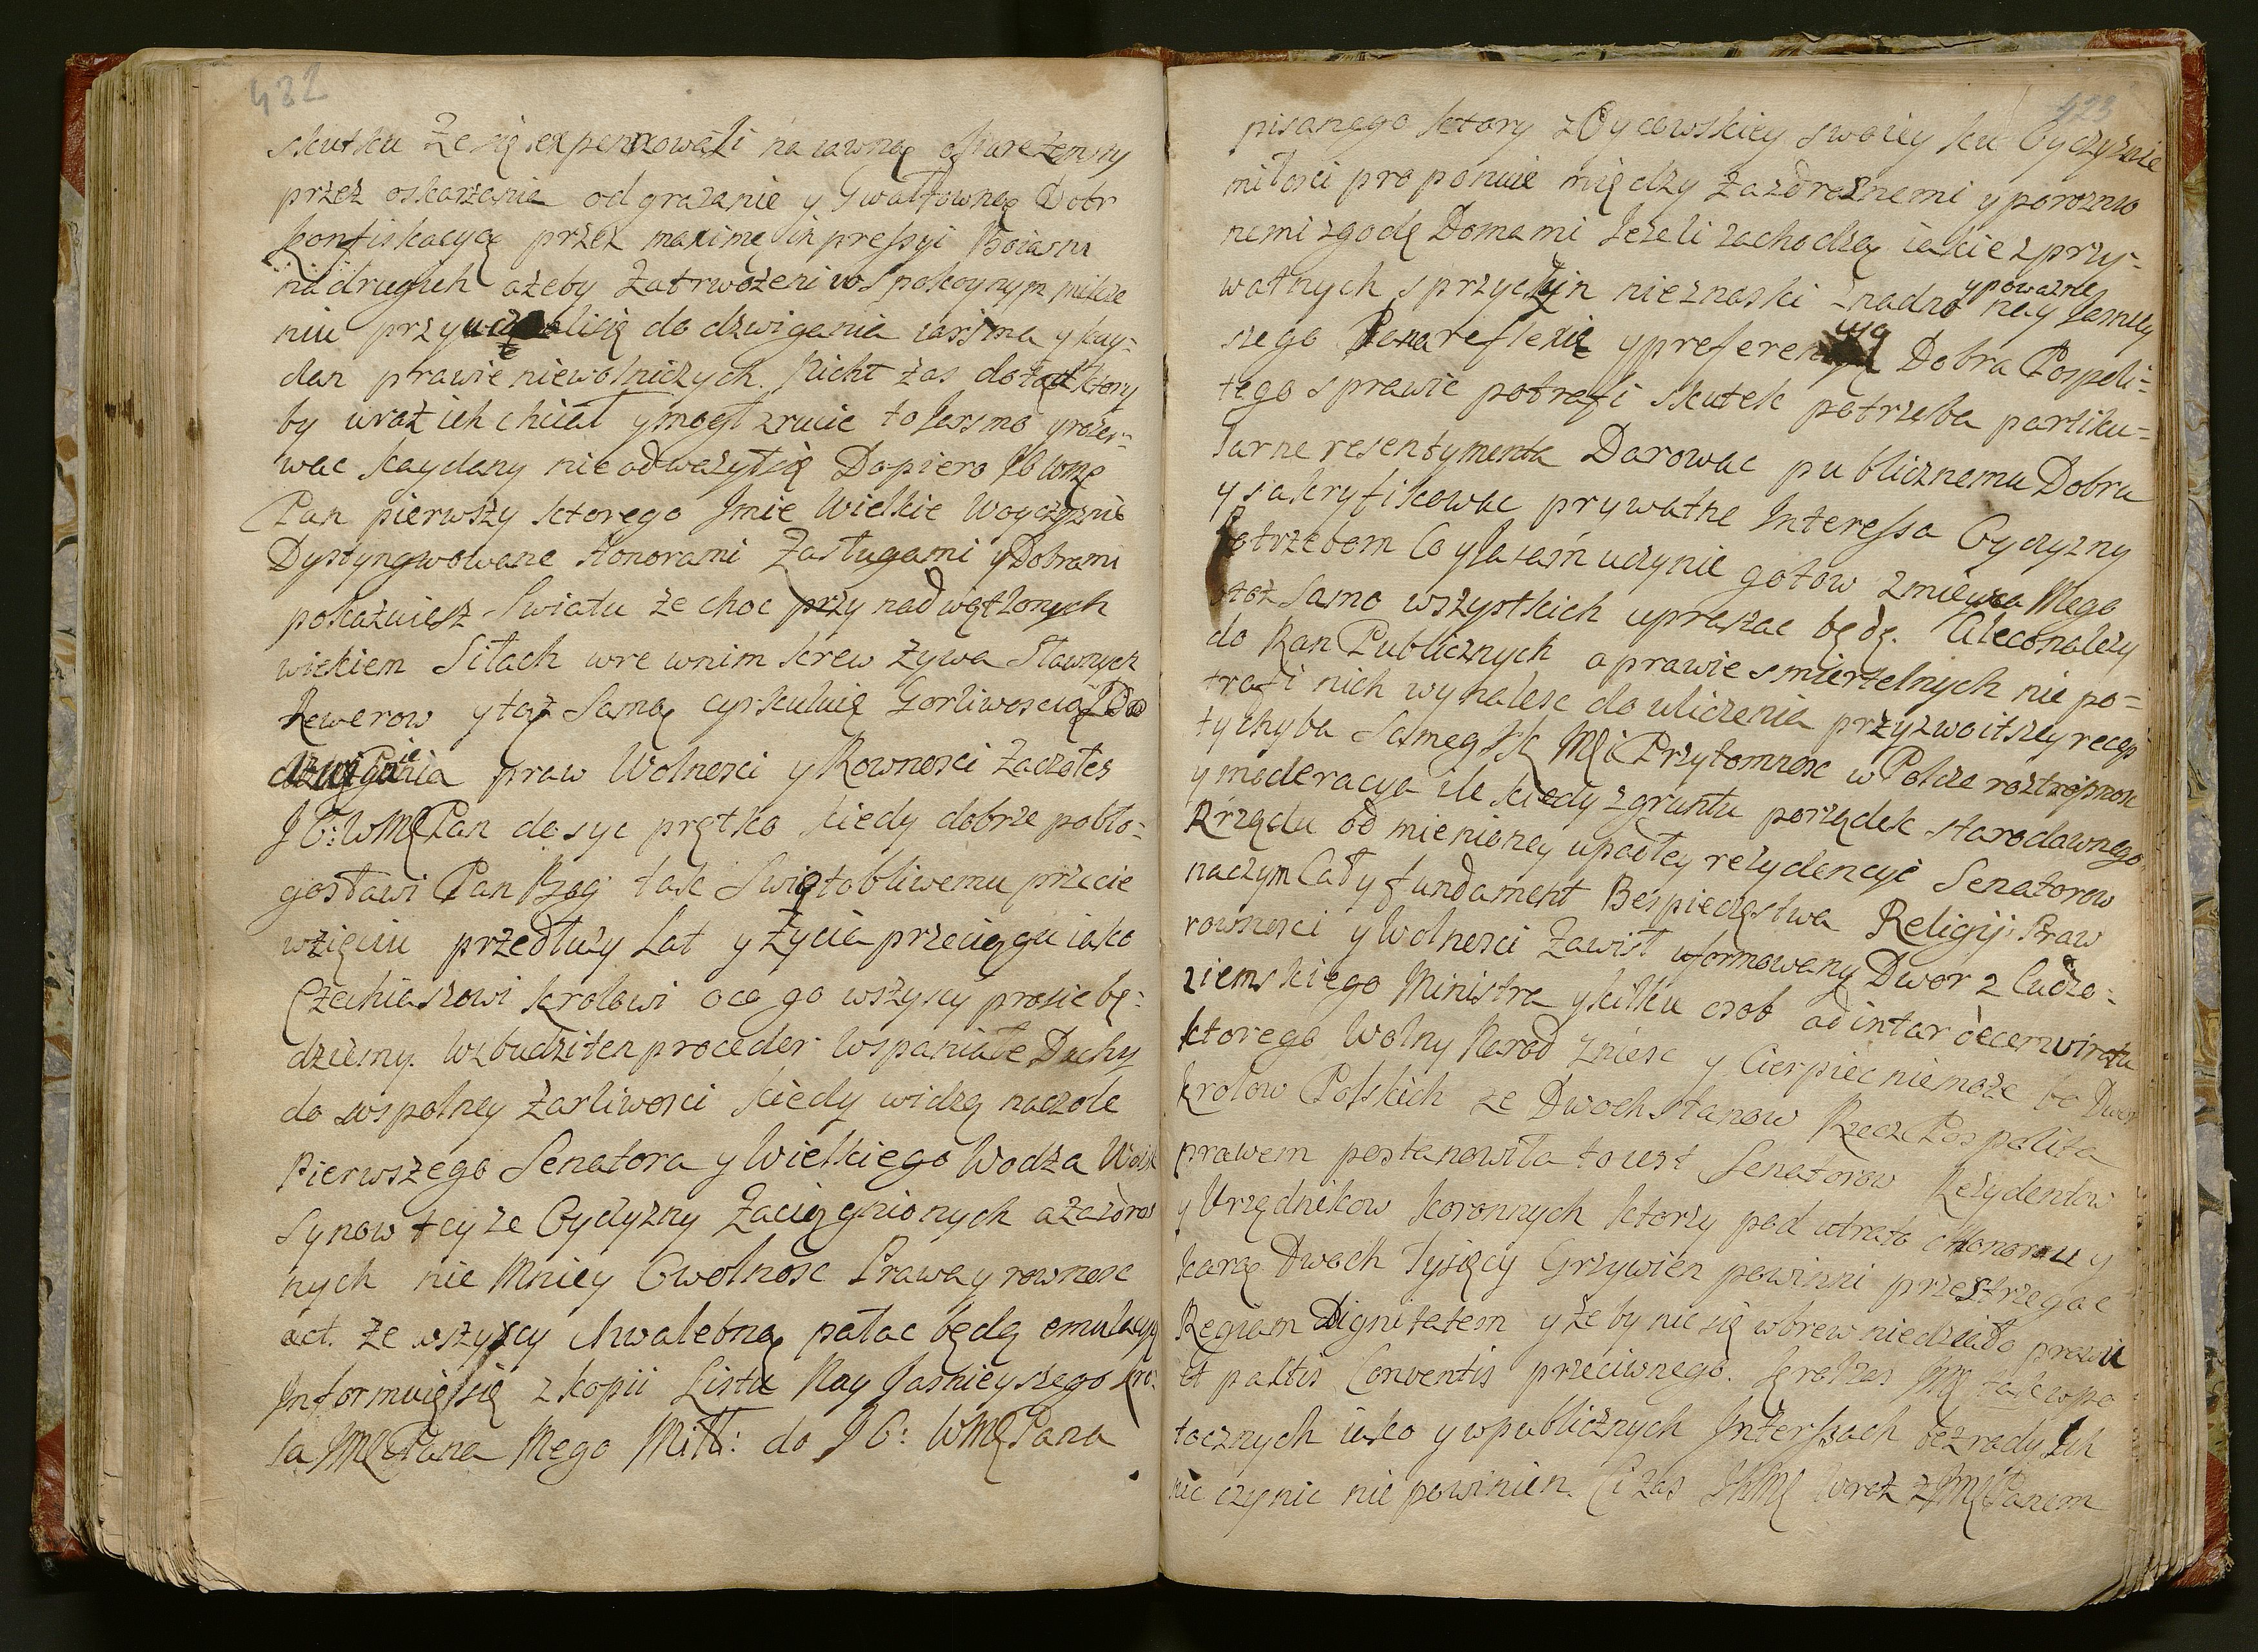 422
skutku Ze się experrowali na iawną
przez oskarzanie odgrazanie y Gwałtowną Dobr
konfiskacyą przez maximę inpressyi Boiasni
na drugich ażeby Zatrwożeni w Spokoynym milcze
niu przyuczalisię do dzwigania iarzma y kay-
dan prawie niewolniczych. Nicht zas dotąd ktory
by wraz ich chciał y mogł zrucic to Jarzmo y rozer-
wac kaydany nie odważył się Dopiero JO WMę
Pan pierwszy ktorego Jmie Wielkie W Oyczyznie
Dystyngwowane Honorami Zasługami y Dobrami
pokazuiesz Swiatu że choc przy nadwątlonych
wiekiem Siłach wre w nim krew żywa Sławnych
Rewerow y taż Samą cyrkuluię Gorliwoscią Do
dzwignienia praw Wolnosci y Rownosci Zacząłes
JO: WMę Pan dosyc prętko kiedy dobrze pobło-
gosławi Pan Bog tak Swiętobliwemu przecie
wzięciu przedłuzy Lat y Zycia przeciągu iako
Ezechiaszowi krolowi oco go wszyscy prosic bę-
dziemy. Wzbudzi ten proceder Wspaniałe Duchy
do wspolney żarliwosci kiedy widzą na czole
Pierwszego Senatora y Wielkiego Wodza Woisk
Synow teyże Oyczyzny Zaciągnionych a zazdros
nych nie Mniey O wolnosc Prawa y rownosc
act. ze wszyscy chwalebną pałac będą emulacyą
Informuię się z kopii Listu Nay Jasnieyszego kro-
la JMę Pana Mego Mił: do JO: WMę Pana
423
pisanego ktory z Oycowskiey swoiey ku Oyczyznie
miłosci proponuie między Zazdrosnemi y porozno
nemi zgodę Domami Jeżeli zachodzą iakie z pry-
watnych przyczyn nieznaski Znadno y poważne nay Jasniey
szego Pana reflexie y preferencya Dobra Pospoli-
tego sprawic potrafi skutek potrzeba partiku-
larne resentymenta Darowac publicznemu Dobru
y sakryfikowac prywatne Interessa Oyczyzny
Potrzebom Co y Ja sam uczynic gotow z miewca Mego
otoż samo wszystkich upraszac będę. Ale co nalezy
do Ran Publicznych a prawie smiertelnych nie po-
trafi nich wynalesc do uliczenia przyzwoitszey recep
ty chyba Samego JK Mci Przytomnosc w Polszcze roztropnosc
y moderacya ile kiedy z gruntu porządek starodawnego
Rządu odmieniony upadłey rezydencyi Senatorow
na czym Cały fundament Bespieczęstwa Religij Praw
rownosci y Wolnosci Zawisł uformowany Dwor z Cudzo-
ziemskiego Ministra y kilku osob ad instar decemviratu
ktorego Wolny Narod Zniesc y Cierpiec nie moze bo Dwor
krolow Polskich ze Dwoch Stanow Rzecz Pospolita
prawem postanowiła to iest Senatorow Rezydentow
y Urzędnikow koronnych ktorzy pod utratą Honoru y
karą Dwoch Tysięcy Grzywien powinni przestrzegac
Regiam Dignitatem y żeby nic się wbrew niedziało prawu
et paktis Conventis przeciwnego. krol zas JMę tak w po
tocznych iako y w publicznych Interssach bez rady Ich
nic czynic nie powinien. Ci zas JKMę wraz z JMę Panem